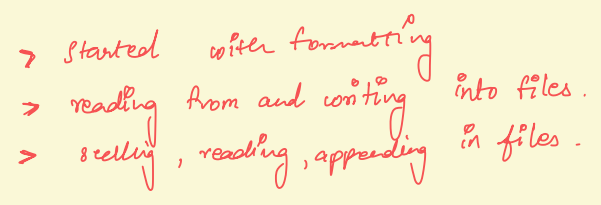 > started with formatting
> reading from and writing into files.
> , reading, appending in files.